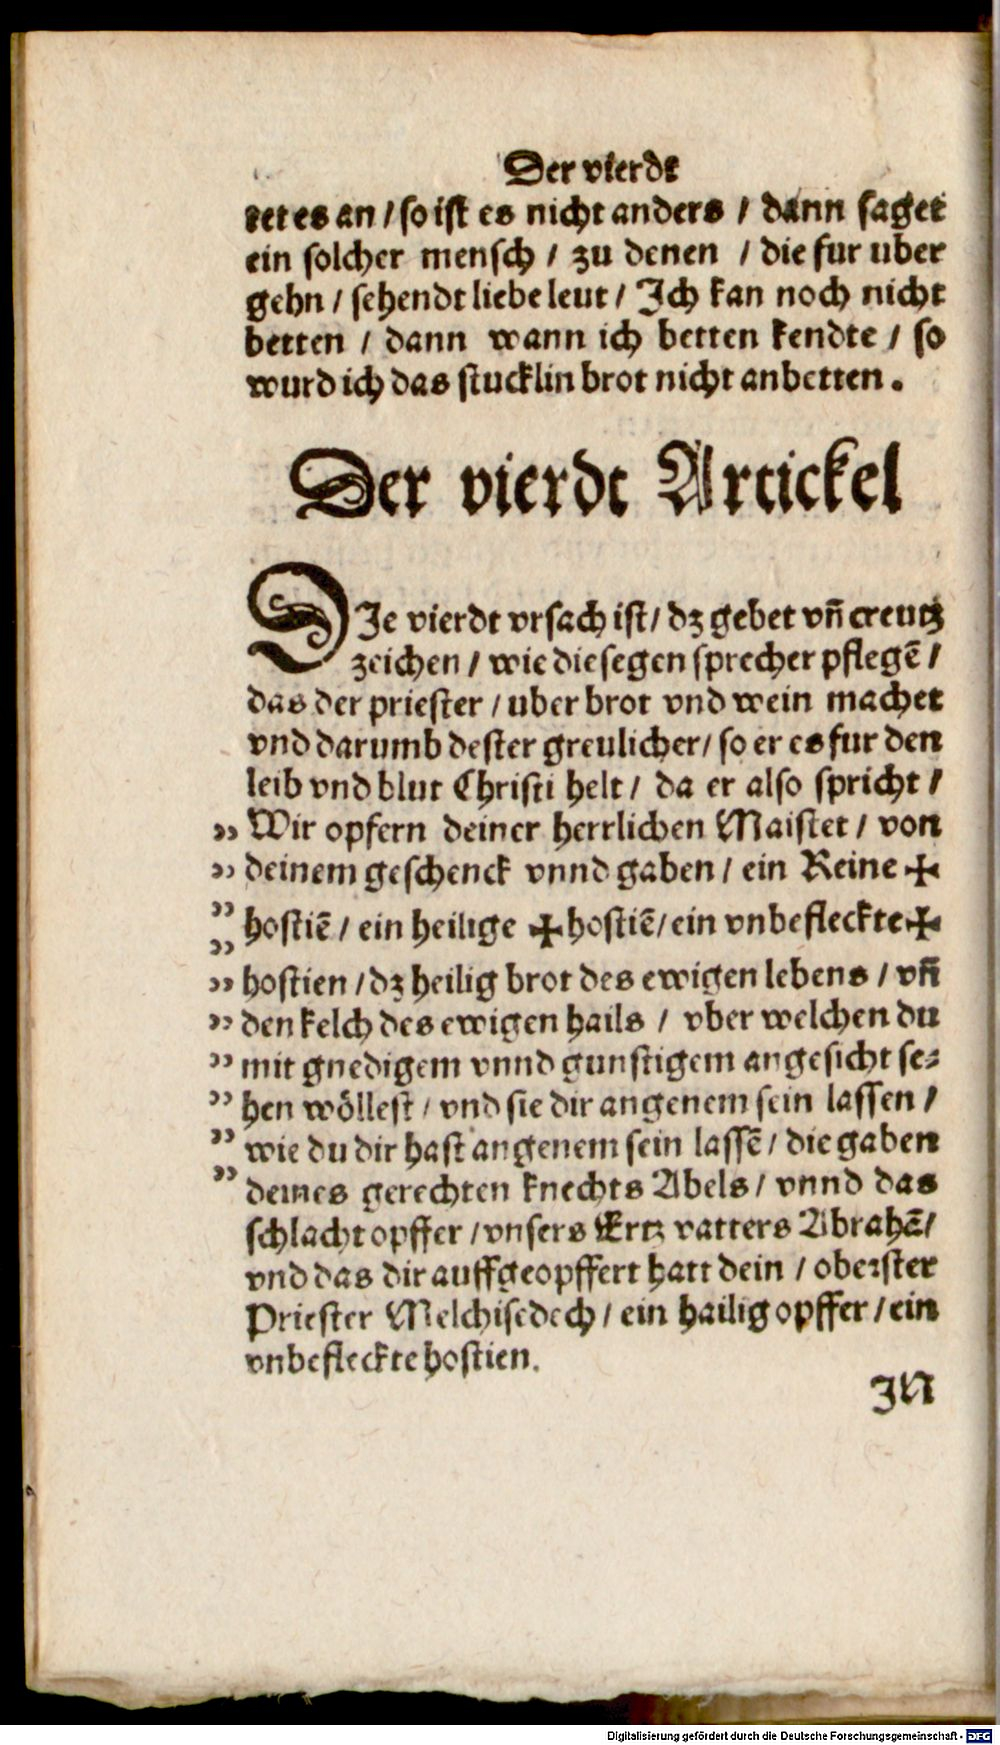 Der vierdt
tet es an / so ist es nicht anders / dann saget
ein solcher mensch / zu denen / die fur uber
gehn / sehendt liebe leut / Ich kan noch nicht
betten / dann wann ich betten kendte / so
wurd ich das stucklin brot nicht anbetten.
Der vierdt Artickel
DIe vierdt vrsach ist / dz gebet vn̄ creutz
zeichen / wie die segen sprecher pflegē /
das der priester / uber brot vnd wein machet
vnd darumb dester greulicher / so er es fur den
leib vnd blut Christi helt / da er also spricht /
„ Wir opfern deiner herrlichen Maistet / von
„ deinem geschenck vnnd gaben / ein Reine ✠
„ hostiē / ein heilige ✠ hostiē / ein vnbefleckte ✠
„
„ hostien / dz heilig brot des ewigen lebens / vn̄
„ den kelch des ewigen hails / vber welchen du
„ mit gnedigem vnnd gunstigem angesicht se⸗
„ hen wöllest / vnd sie dir angenem sein lassen /
„ wie du dir hast angenem sein lassē / die gaben
„ deines gerechten knechts Abels / vnnd das
schlacht opffer / vnsers Ertz vatters Abrahā /
vnd das dir auffgeopffert hatt dein / obeꝛster
Priester Melchisedech / ein hailig opffer / ein
vnbefleckte hostien.
IN
Digitalisierung gefördert durch die Deutsche Forschungsgemeinschaft - DFG